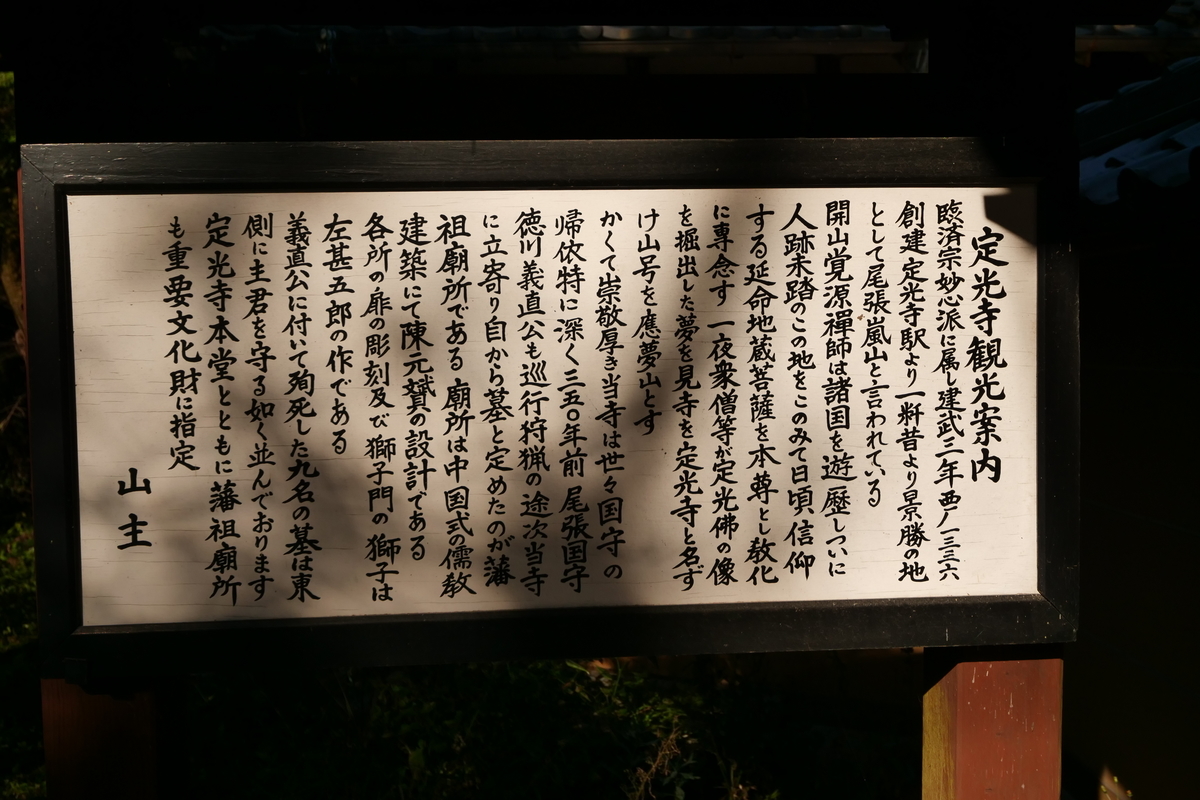 定光寺観光案内
臨済宗妙心派に属し建武三年西ノ一三三六
創建定光寺駅より一粁昔より景勝の地
として尾張嵐山と言われている
開山覚源禪師は諸国を遊歴しついに
人跡未踏のこの地をこのみて日頃信仰
する延命地蔵菩薩を本尊とし教化
に専念す一夜衆僧等が定光佛の像
を掘出した夢を見寺を定光寺と名ず
け山号を應夢山とす
かくて崇敬厚き当寺は世々国守の
帰依特に深く三五〇年前尾張国守
徳川義直公も巡行狩猟の途次当寺
に立寄り自から墓と定めたのが藩
祖廟所である 廟所は中国式の儒教
建築にて陳元贇の設計である
各所の扉の彫刻及び獅子門の獅子は
左甚五郎の作である
義直公に付いて殉死した九名の墓は東
側に主君を守る如く並んでおります
定光寺本堂とともに藩祖廟所
も重要文化財に指定
山主